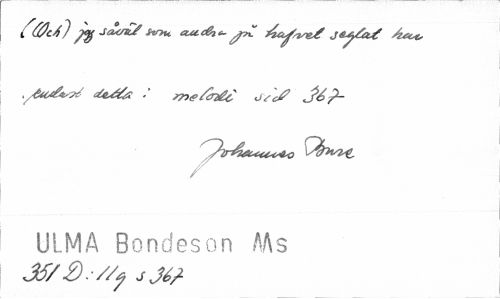 (Och) jag såväl som andra på hafvet seglat har
endast detta : melodi sid 367
Johannes Bure
ULMA Bondeson Ms
351 D:11q s 367